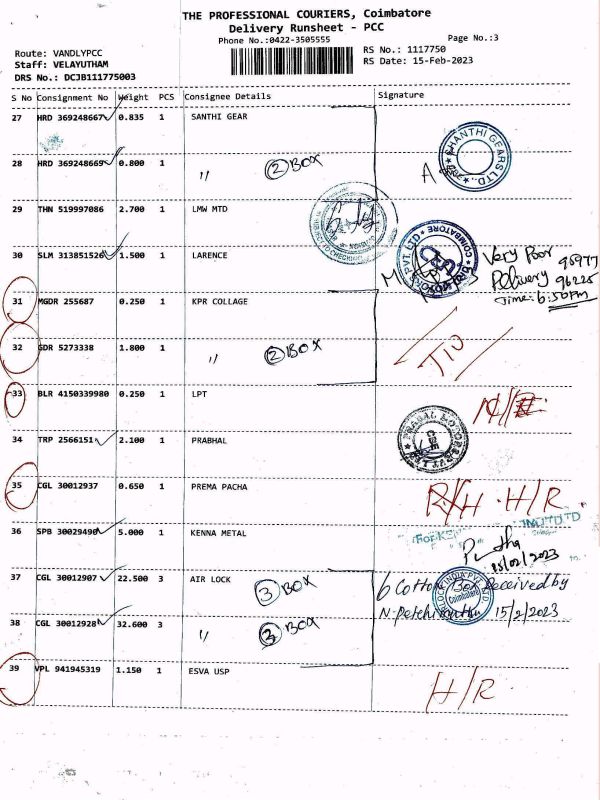 THE PROFESSIONAL COURIERS, Coimbatore
Delivery Runsheet - PCC
Phone No.:0422-3505555
Page No.:3
Route: VANDLYPCC
Staff: VELAYUTHAM
DRS No.: DCJB111775003
RS No.: 1117750
RS Date: 15-Feb-2023
S No Consignment No Weight PCS Consignee Details Signature
27 HRD 369248667 0.835 1 SANTHI GEAR
SHANTHI GEARS LTD.,
28 HRD 369248669 0.800 1 " 2 BOX
29 THN 519997086 2.700 1 LMW MTD
30 SLM 313851520 1.500 1 LARENCE
COIMBATORE
PVT. LTD.
Very Poor 95977
Delivery 96225
Time: 6:50PM
31 MGDR 255687 0.250 1 KPR COLLAGE
32 GDR 5273338 1.800 1 " 2 BOX
33 BLR 4150339980 0.250 1 LPT
34 TRP 2566151 2.100 1 PRABHAL
PRABAL MOTORS PVT LTD
CBE
35 CGL 30012937 0.650 1 PREMA PACHA
H/R
36 SPB 30029490 5.000 1 KENNA METAL
15/02/2023
37 CGL 30012907 22.500 3 AIR LOCK 3 BOX
6 Cotton Box Received by
38 CGL 30012928 32.600 3 " 3 BOX
15/2/2023
INDIA PVT LTD
Coimbatore
39 VPL 941945319 1.150 1 ESVA USP
H/R